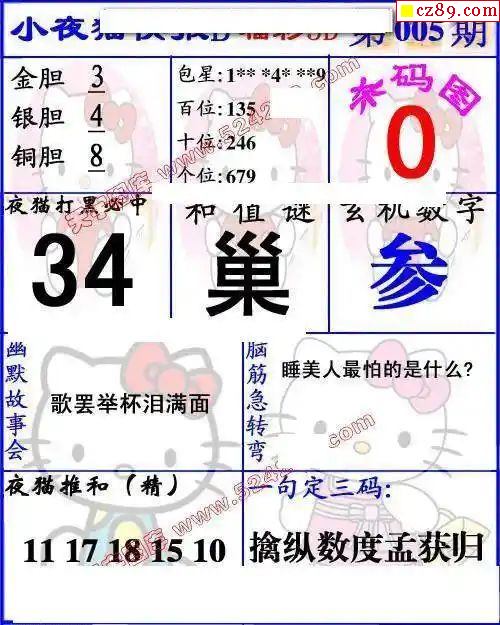 cz89.com
小夜猫
第005期
金胆 3
银胆 4
铜胆 8
包星:1** *4* **9
百位:135
十位:246
个位:679
杀码图
0
夜猫打黑必中
34
和值谜
巢
玄机数字
参
幽默故事会
歌罢举杯泪满面
脑筋急转弯
睡美人最怕的是什么?
夜猫推和(精)
11 17 18 15 10
一句定三码:
擒纵数度孟获归